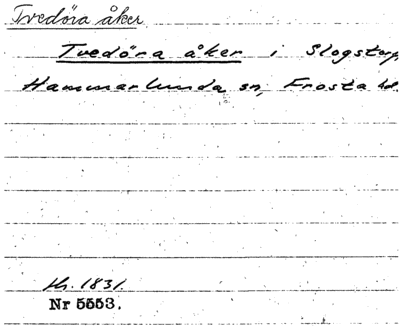 Tvedöra åker
Tvedöra åker i Slogstorp,
Hammarlunda sn, Frosta hd.
Kr. 1831.
Nr 5553.